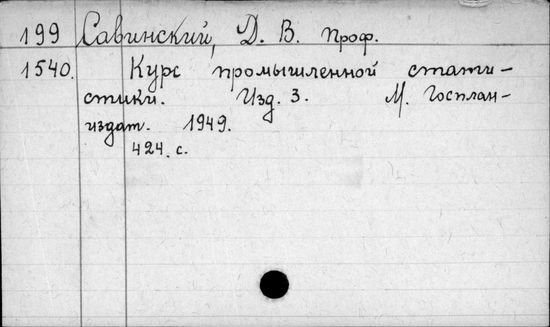 199 Савинский, Д. В. Проф.
1540. Курс промышленной стати-
стики. Изд. 3. М. Госплан-
издат. 1949.
424. с.